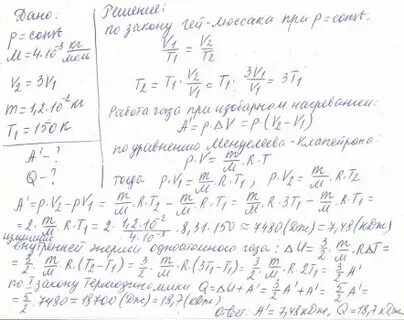 Дано:
p = const
M = 4·10⁻³ кг/моль
V₂ = 3V₁
m = 1,2·10⁻² кг
T₁ = 150 К
A' - ?
Q - ?
Решение:
по закону Гей-Люссака при p = const:
V₁/T₁ = V₂/T₂
T₂ = T₁·V₂/V₁ = T₁·3V₁/V₁ = 3T₁
Работа газа при изобарном нагревании:
A' = p·ΔV = p·(V₂-V₁)
по уравнению Менделеева-Клапейрона:
p·V = m/M·R·T
тогда p·V₁ = m/M·R·T₁, p·V₂ = m/M·R·T₂
A' = p·V₂ - p·V₁ = m/M·R·T₂ - m/M·R·T₁ = m/M·R·3T₁ - m/M·R·T₁ =
= 2·m/M·R·T₁ = 2·1,2·10⁻²/4·10⁻³·8,31·150 ≈ 7480 (Дж) = 7,48 (кДж)
внутренней энергии одноатомного газа: ΔU = 3/2·m/M·RΔT =
= 3/2·m/M·R·(T₂-T₁) = 3/2·m/M·R·(3T₁-T₁) = 3/2·m/M·R·2T₁ = 3/2 A'
по I закону термодинамики Q = ΔU + A' = 3/2 A' + A' = 5/2 A' =
= 5/2·7480 = 18700 (Дж) = 18,7 (кДж)
Ответ: A' = 7,48 кДж, Q = 18,7 кДж